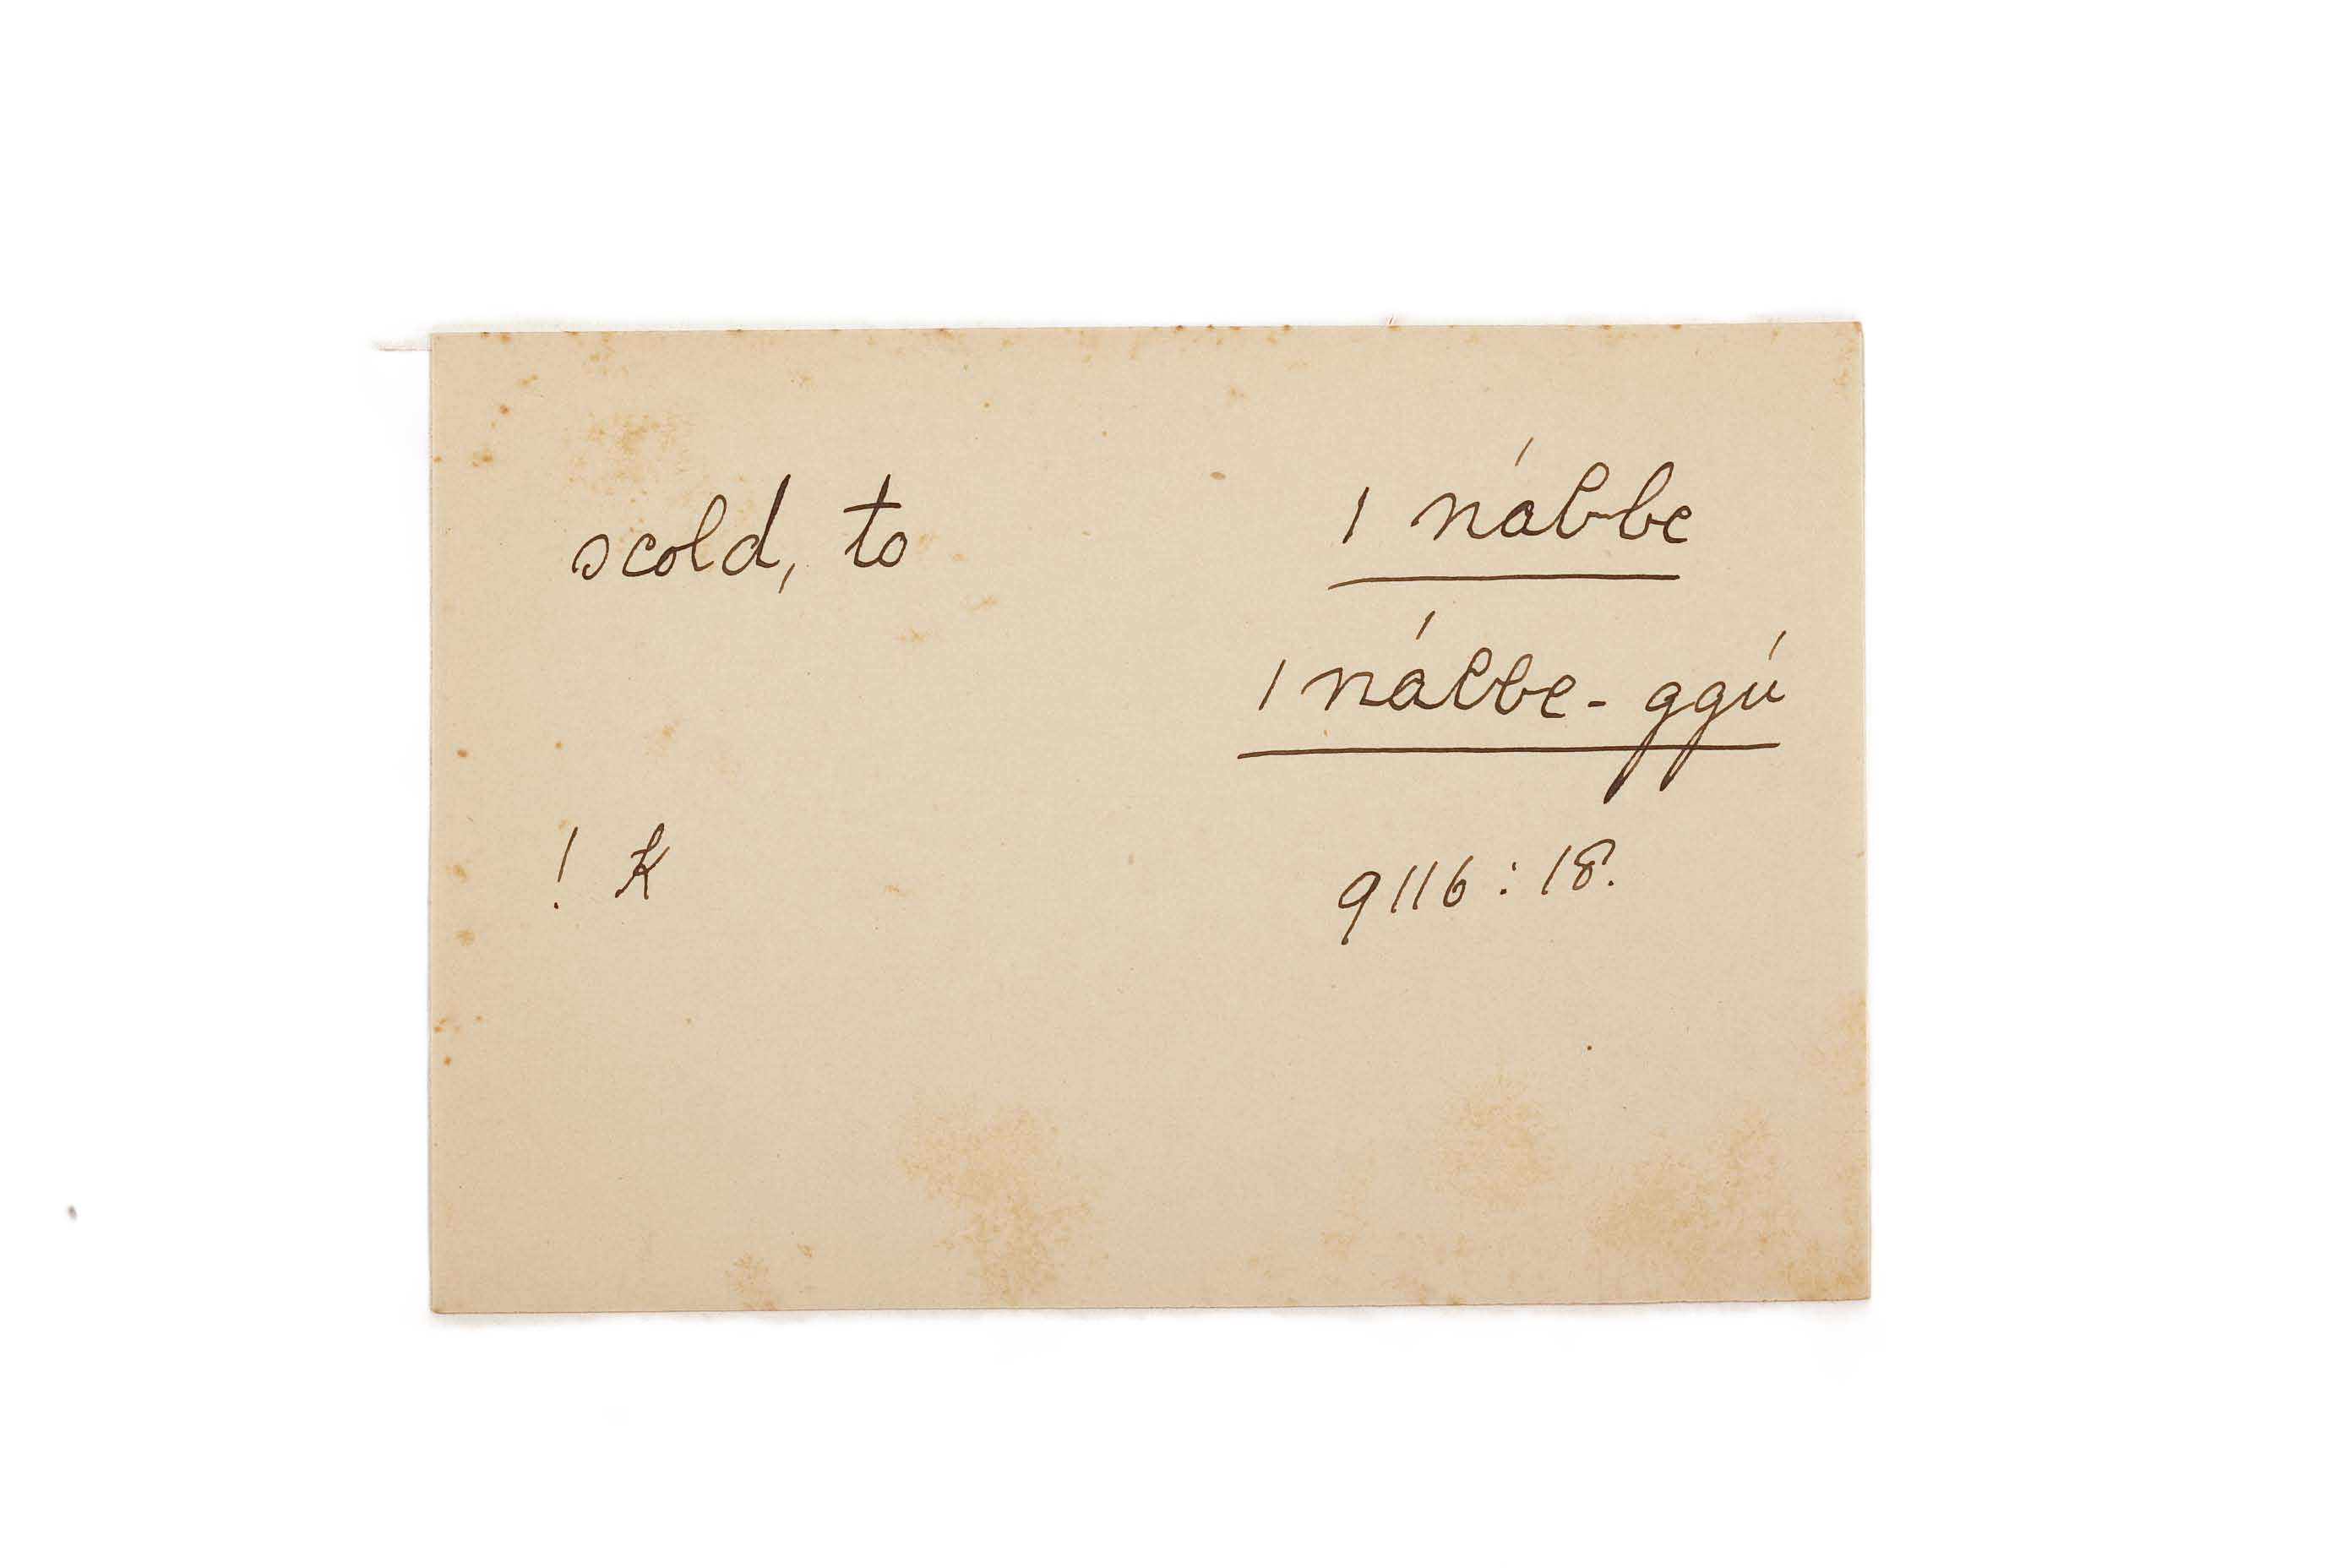 scold, to    | nábbe
| nábbe-ggú
! k    9116:18.